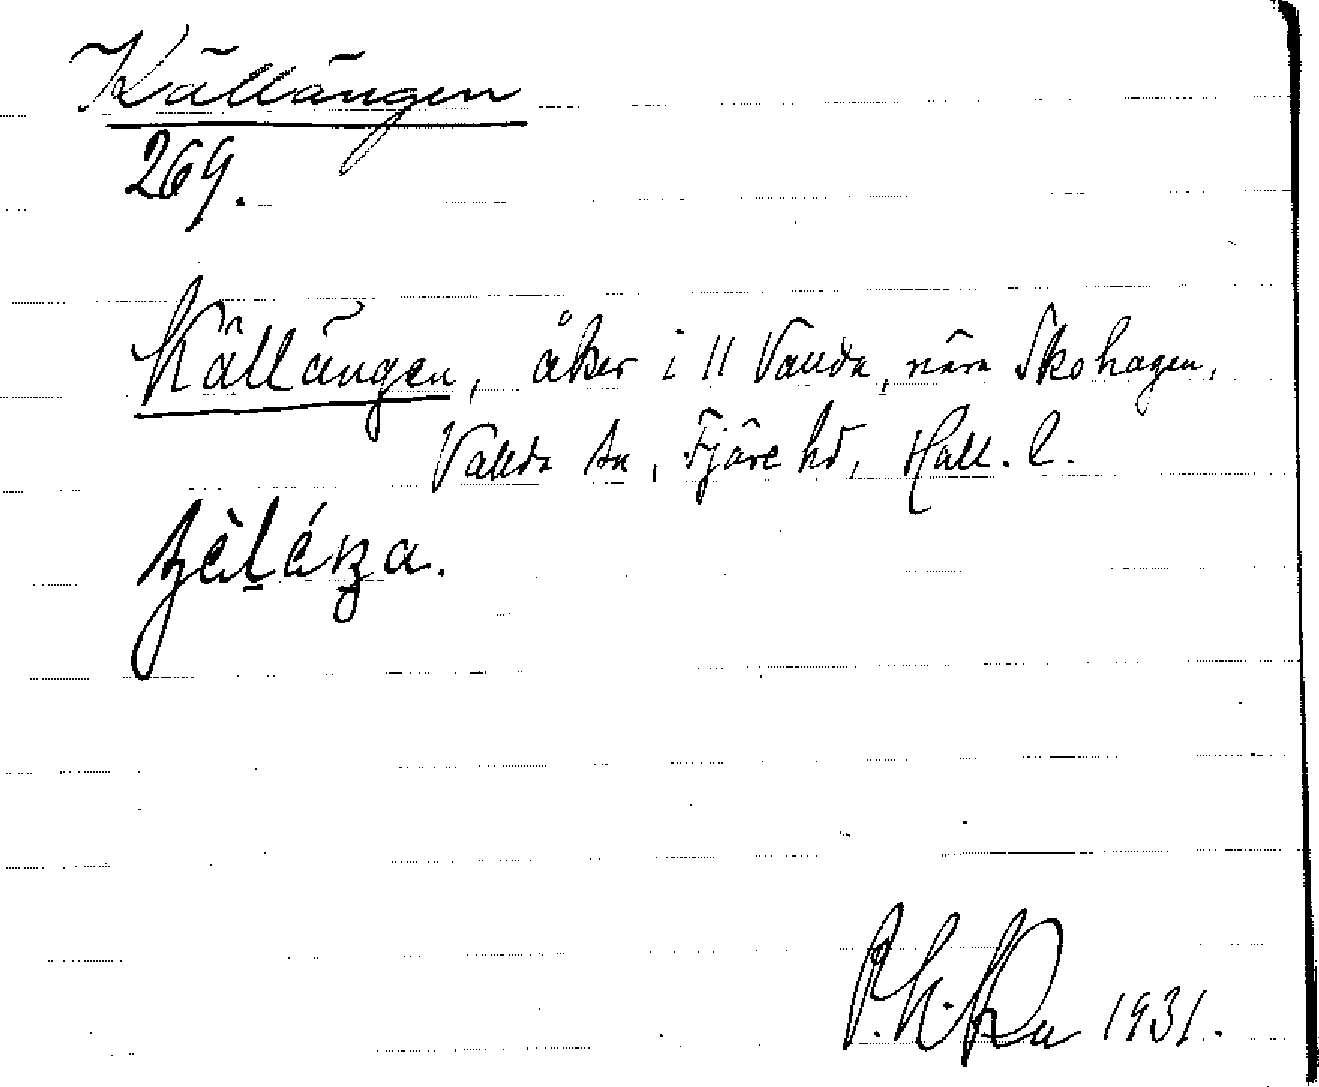 Källängen
269.
Källängen, åker i 11 Vallda, nära Skohagen,
Vallda sn, Fjäre hd, Hall. l.
1931.